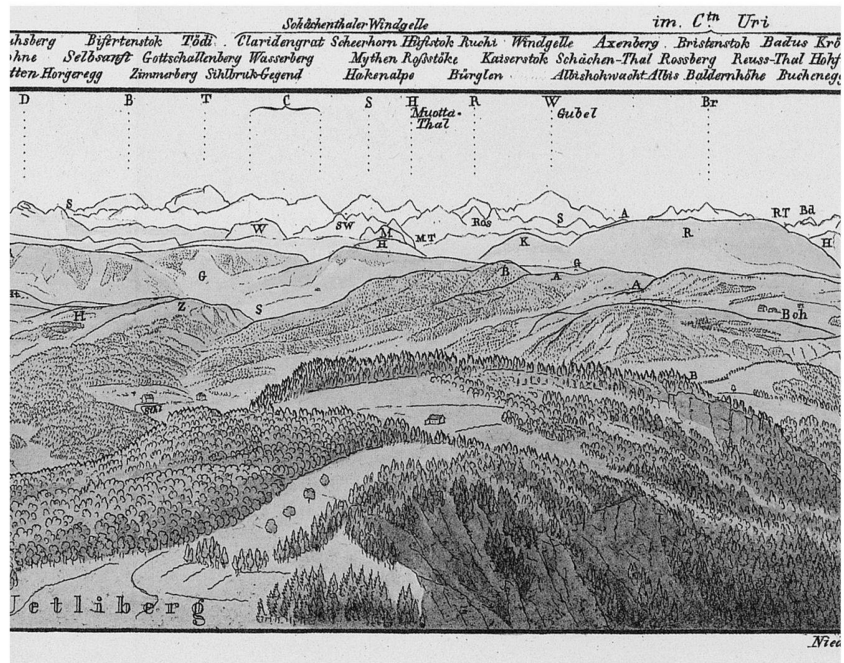 Schächenthaler Windgelle
im. Ctn Uri
Bifertenstok Tödi. Claridengrat Scheerhorn Hüfistok Ruchi Windgelle Axenberg Bristenstok Badus
Selbsanft Gottschallenberg Wasserberg Mythen Roßstöke Kaiserstok Schächen-Thal Rossberg Reuss-Thal
Horgeregg Zimmerberg Sihlbruk-Gegend Hakenalpe Bürglen Albishohwacht Albis Baldernhöhe
D B T C S H R W Br
Muotta-
Thal
Gubel
S
SW
W
M
H
MT
Ros
S
A
K
R
RT
Bd
H
G
B
A
G
A
H
Z
S
Boh
B
Uetliberg